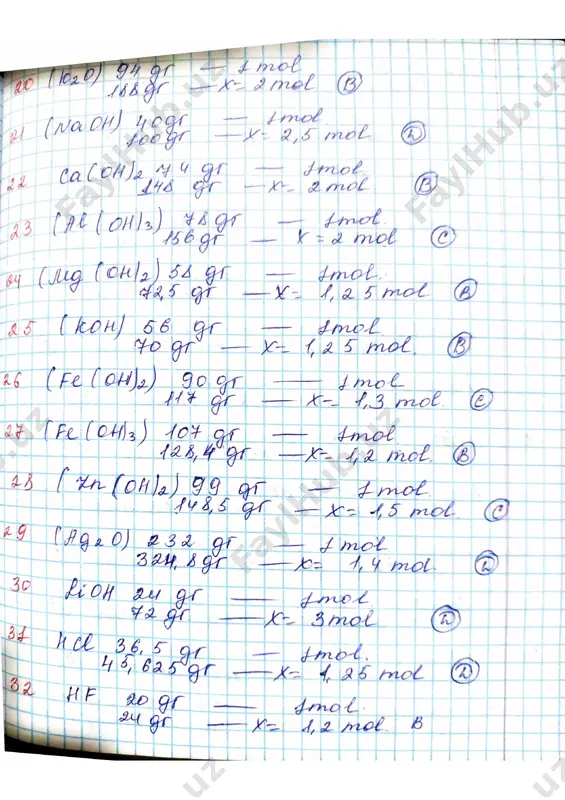 20 (K2O) 94 gr — 1 mol
188 gr — x= 2 mol B
21 (NaOH) 40 gr — 1 mol
100 gr — x= 2,5 mol D
22 Ca(OH)2 74 gr — 1 mol
148 gr — x= 2 mol B
23 (Al(OH)3) 78 gr — 1 mol
156 gr — x= 2 mol C
24 (Mg(OH)2) 58 gr — 1 mol
72,5 gr — x= 1,25 mol B
25 (KOH) 56 gr — 1 mol
70 gr — x= 1,25 mol. B
26 (Fe(OH)2) 90 gr — 1 mol
117 gr — x= 1,3 mol. C
27 (Fe(OH)3) 107 gr — 1 mol
128,4 gr — x= 1,2 mol. B
28 (Zn(OH)2) 99 gr — 1 mol
148,5 gr — x= 1,5 mol C
29 (Ag2O) 232 gr — 1 mol
324,8 gr — x= 1,4 mol. D
30 LiOH 24 gr — 1 mol
72 gr — x= 3 mol D
31 HCl 36,5 gr — 1 mol.
45,625 gr — x= 1,25 mol D
32 HF 20 gr — 1 mol.
24 gr — x= 1,2 mol. B
FaylHub.uz
FaylHub.uz
FaylHub.uz